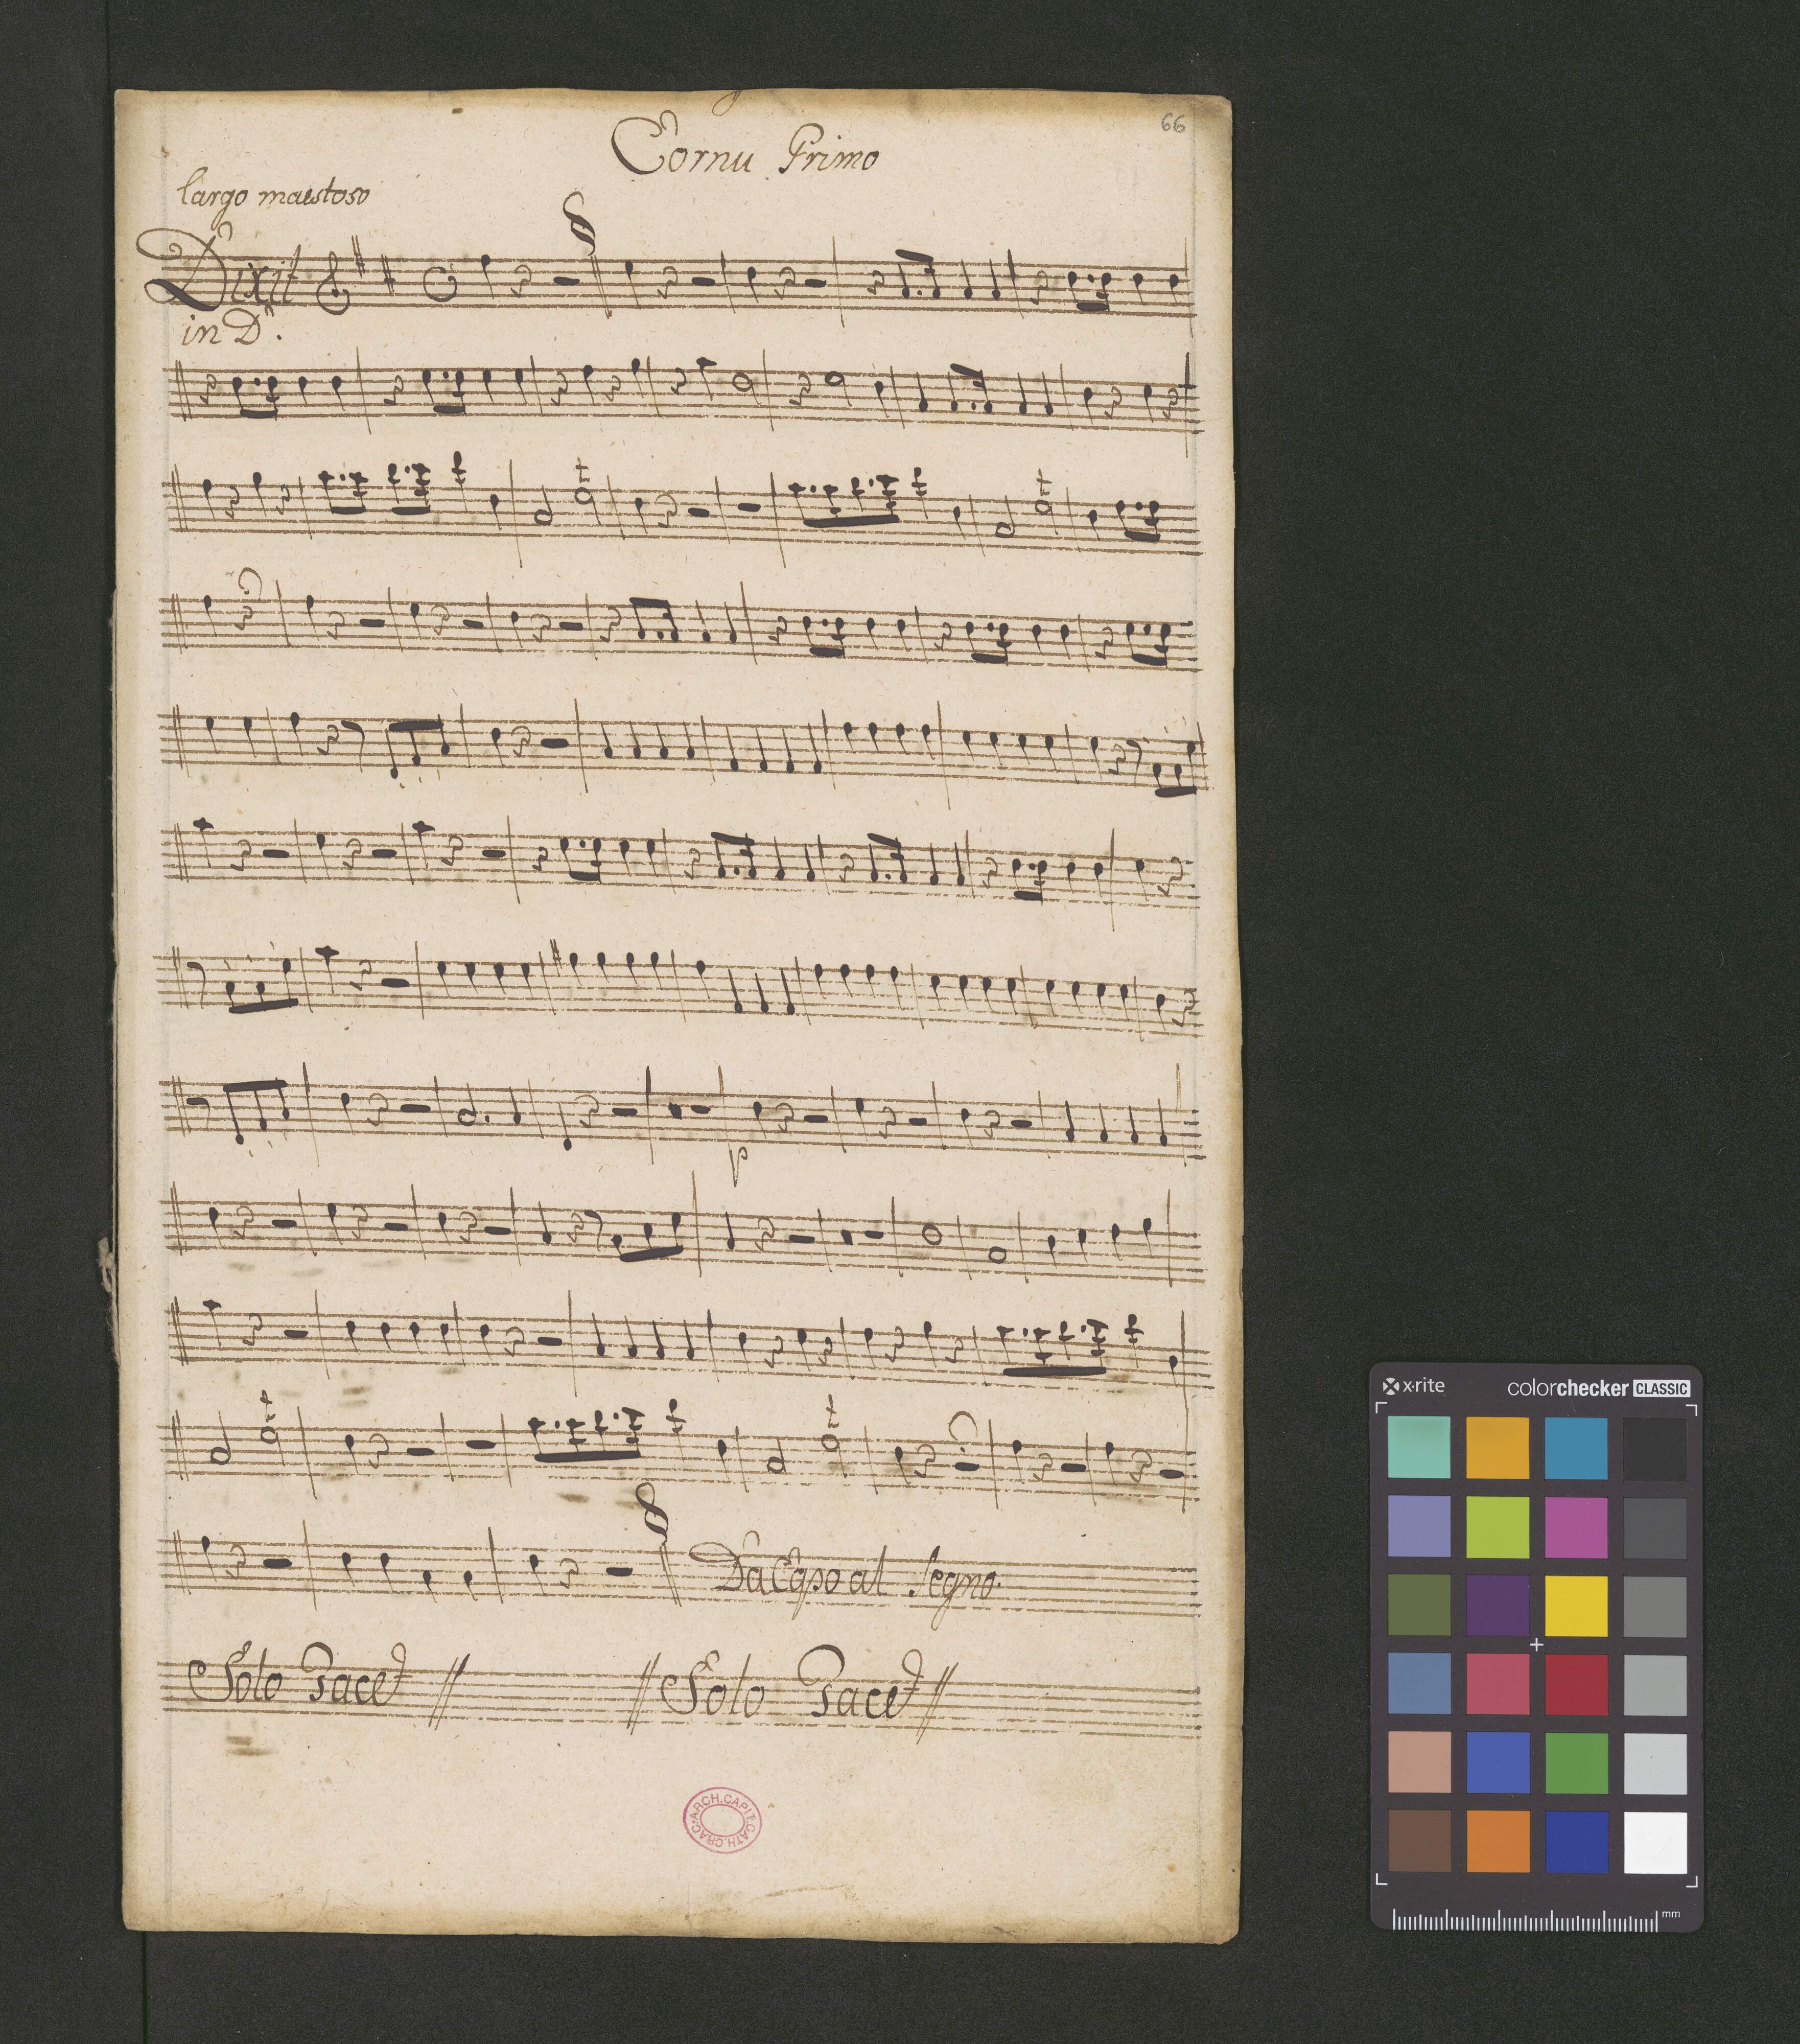 66
Cornu Primo
largo maestoso
Dixit
in D#.
p
Da Capo al Segno.
Solo Tacet // // Solo Tacet //
ARCH.CAPIT.CATH.CRAC.
x-rite colorchecker CLASSIC
mm